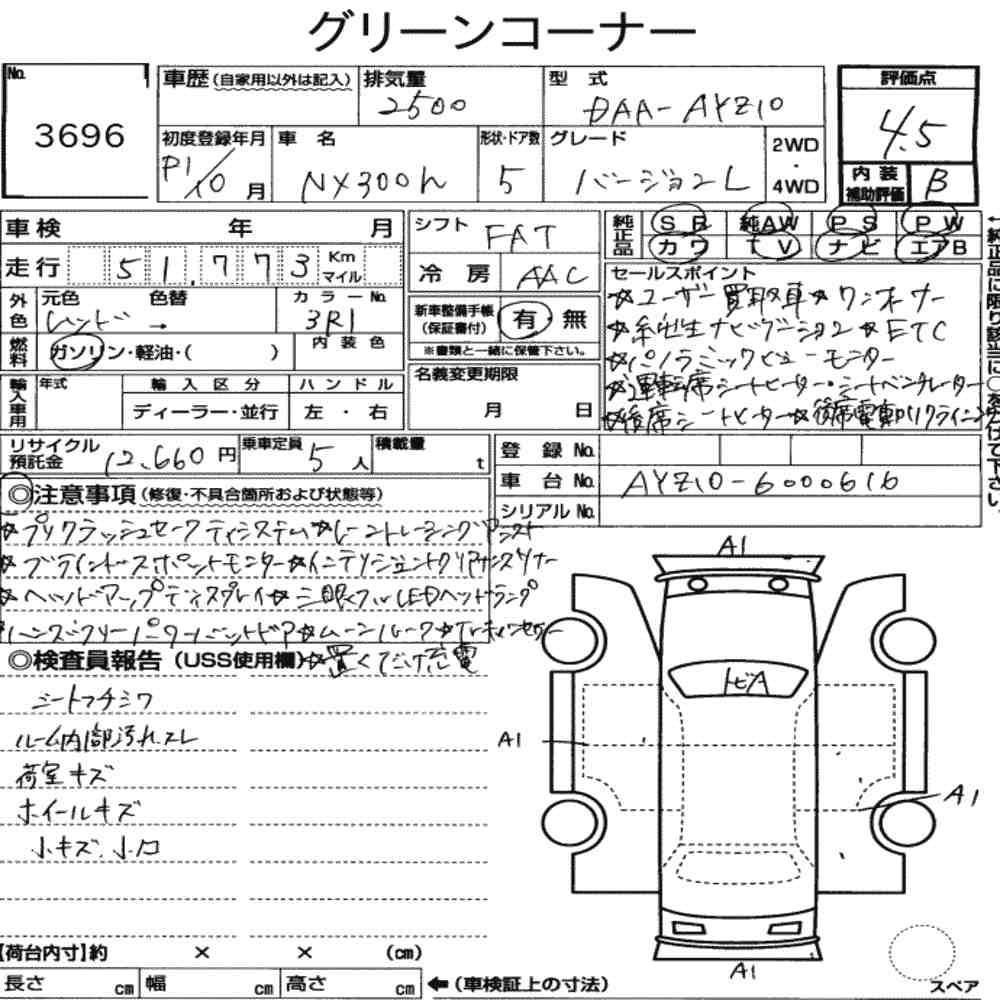 グリーンコーナー
No. 3696
車歴(自家用以外は記入) 排気量 2500 型式 DAA-AYZ10 評価点 4.5
初度登録年月 10月 車名 NX300h 形状・ドア数 5 グレード バージョンL 2WD・4WD 内装補助評価 B
車検 年 月 シフト FAT 純正品 SR 純AW PS PW
カワ TV ナビ エアB
走行 51,773 Km マイル 冷房 AAC
←純正品に限り該当に○を付けて下さい。
外色 元色 色替 カラーNo. レッド → 3R1 内装色
新車整備手帳(保証書付) 有・無
※書類と一緒に保管下さい。
燃料 ガソリン・軽油・( )
セールスポイント
☆ユーザー買取車☆ワンオーナー
☆純正ナビゲーション☆ETC
☆パノラミックビューモニター
☆運転席シートヒーター・シートベンチレーター
☆後席シートヒーター☆後席電動リクライニング
輸入車用 年式 輸入区分 ハンドル
ディーラー・並行 左・右
名義変更期限 月 日
リサイクル預託金 12,660円 乗車定員 5人 積載量 t
登録No.
車台No. AYZ10-6000616
シリアルNo.
◎注意事項(修復・不具合箇所および状態等)
☆プリクラッシュセーフティシステム☆レーントレーシングアシスト
☆ブラインドスポットモニター☆インテリジェントクリアランスソナー
☆ヘッドアップディスプレイ☆三眼フルLEDヘッドランプ
ハンズフリーパワーバックドア☆ムーンルーフ
◎検査員報告(USS使用欄) ☆置くだけ充電
シートフチシワ
ルーム内部汚れスレ
荷室キズ
ホイールキズ
小キズ、小凹
A1
トビA
A1
A1
A1
【荷台内寸】約 × × (cm)
長さ cm 幅 cm 高さ cm ←(車検証上の寸法)
スペア